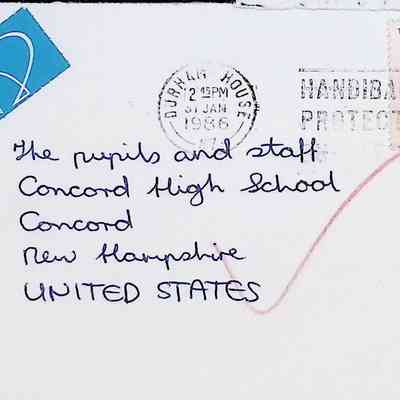 DURHAM HOUSE
2 15PM
31 JAN
1986
HANDIBA
PROTECT
The pupils and staff
Concord High School
Concord
New Hampshire
UNITED STATES